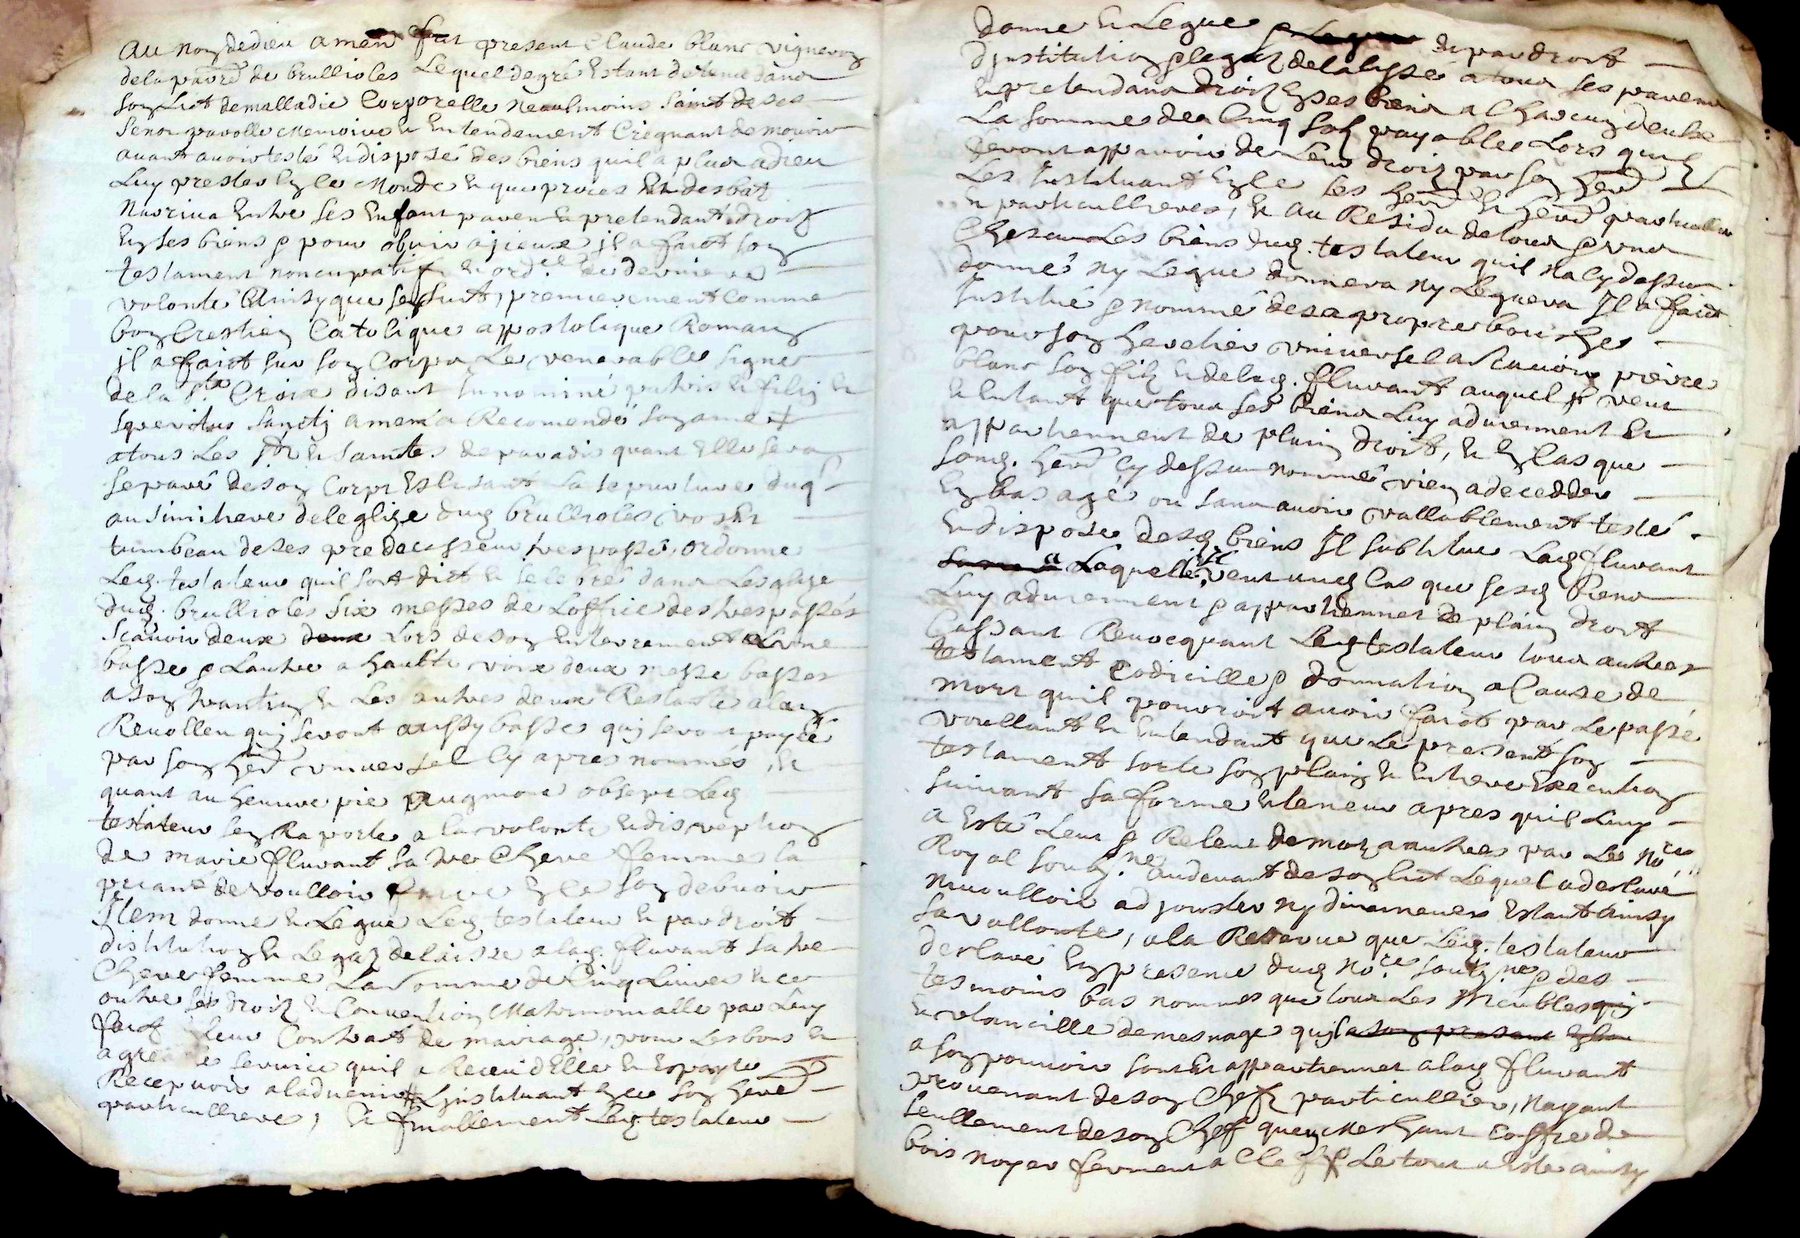 Au nom de dieu amen fut present Claude blanc vigneron
de la parr.e de brullioles Lequel de gré Estant detenu dans
son Lict de malladie Corporelle neaulmoins saint de ses
sens parolle memoire et Entendement Créignant de mourir
avant avoir testé et disposé des biens quil a plus a dieu
Luy prester en ce monde et que proces et desbatz
Narriva Entre ses Enfant paren et pretendant droitz
En ses biens et pour obvir a jceux jl a faict son
testament noncupatif et ord.ce de derniere
volonte Ainsy que sensuit, premierement comme
bon Crestien Catolique appostolique Romain
jl a faict sur son Corps Le venerable signe
de la s.te Croix disant In nomine patris et filij et
spiritus sancti amen a Recomendé son ame
a tous Les st et saintes de paradis quant Elle sera
separé de son Corps Eslisant sa sepulture
au simitiere de leglize dud brullioles
tumbeau de ses predecesseur trespassé, ordonne
Led. testateur quil soit dict et celebré dans Lesglize
dud. brullioles six messes de Loffice des trespassés
scavoir deux deux Lors de son Enterrement Lune
basse et Lautre a haulte voix deux messe basses
a son trantin et Les autres deux Restante a lan
Revollou quj seront aussy basses quj seront payeé
par son her. universel Cy apres nommés, et
quant au heuvre pie aumone obseque Led
testateur sen Raporte a la volonté et discreption
de marie fluvant sa tres Chere femme la
priant de voulloir faire En ce son debvoir
Item donne et Legue Led testateur et par droit
distitution et Legat delaisse a lad. fluvant sa tre
Chere femme La somme de Cinq Livres et ce
outre ses droit et Convention Matrimonialle par Luy
faict Leur Contrat de mariage, pour Les bons et
agreable service quil a Receu dElle et Espere
Recepvoir a ladvenir Linstituant En ce son here
particulliere, et finallement Led testateur
donne et Legue et par droit
djnstitution et legat delaisse a tous ses parens
et pretendans droitz En ses biens a Chascun deulx
La somme de Cinq solz payables Lors quil
seront apparoir de Leur droitz par son her.
Les Instituant En ce ses her. et her. particullier
et particullieres, et Au Residu de tous et uns
Chescuns Les biens dud. testateur quil na Cy dessus
donnes ny Legue donnera ny Leguera Il a faict
Institué et nommé de sa propre bouche
pour son heretier universel a scavoir pierre
blanc son filz et de lad. fluvant auquel jl veut
et Entant que tous ses biens Luy adviennent et
appartiennent de plain droit, et En Cas que
sond. her. Cy dessus nommé vien a deceder
En bas agé ou sans avoir vallablement testé
et dispose desd. biens Il substitue Lad fluvant
Laquelle veut aud Cas que sesd. biens
Luy adviennent et appartiennes de plain droit
Cassant Revocquant Led testateur tous autres
testament Codicille et donnation a Cause de
mort quil pouroit avoir faict par Le passé
voullant et Entendant que Le present son
testament sorte son plain et Entiere Execution
suivant sa forme et teneur apres quil Luy
a Esté Leut et Releut de mot a autres par Le no.re
Royal soub.ne au devant de son lict Lequel a desclaré
ny voulloir adjouster ny diminuers Estant Ainsy
sa vollonte, a la Reserve que Led. testateur
desclare En presence dud no.re soub.ne et des
tesmoins bas nommes que tous Les Meubles quj
et utancille de mesnage quj
a son pouvoir sont Et appartiennes a lad fluvant
provenant de son Chefz particullier, Nayant
seullement de son Chef quen meschant Coffre de
bois noyer fermant a Clef Le tout a Este ainsy